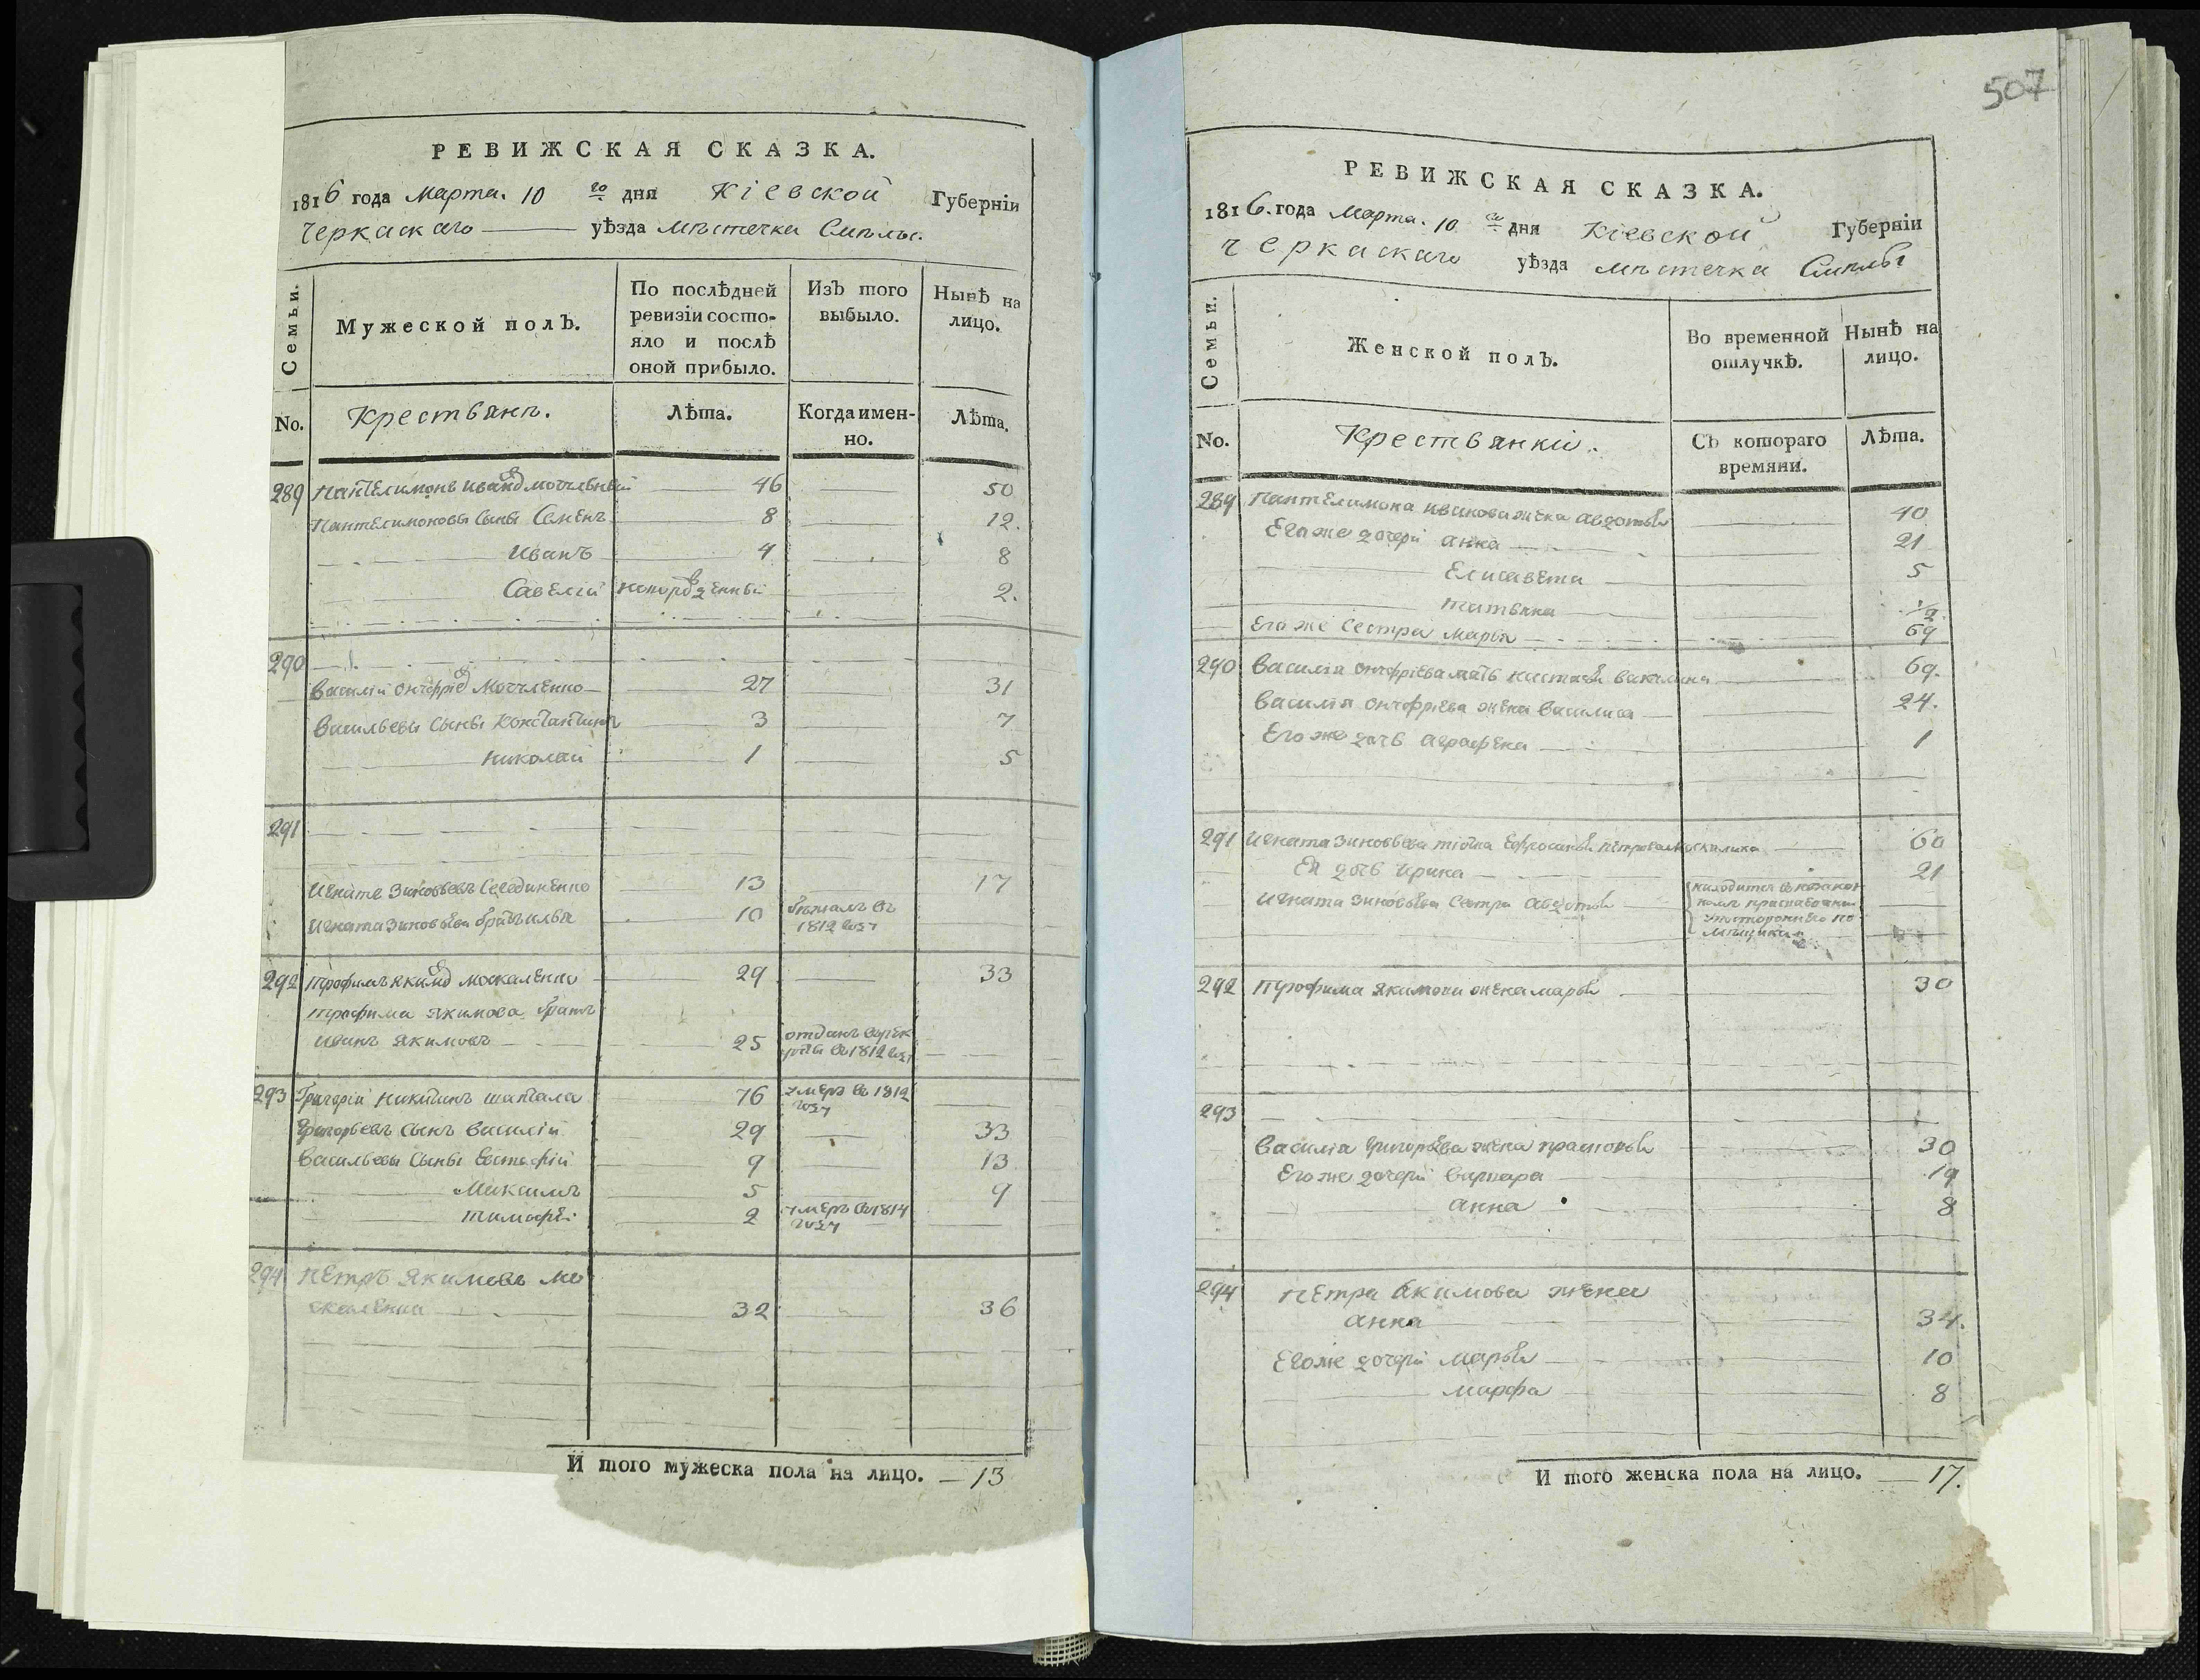 507
РЕВИЖСКАЯ СКАЗКА.
1816 года Марта. 10 го дня Кіевской Губерніи
Черкаскаго уѣзда мѣстечка Смѣлы.
Семьи.
Мужеской полЪ.
По послѣдней ревизіи состо-
яло и послѣ
оной прибыло.
ИзЪ того
выбыло.
Нынѣ на
лицо.
No.
Крестьянъ.
Лѣта.
Когда имен-
но.
Лѣта.
289 Пантелимонъ Ивановъ 46 50
Пантелимоновы сыны Семенъ 8 12.
Иванъ 4 8
Савелій новорожденный 2.
290
Василій Онуфріевъ 27 31
Васильевы сыны Константинъ 3 7
Николай 1 5
291
Игнатъ Зиновьевъ 13 17
Игната Зиновьева братъ Илья 10 бѣжалъ въ
1812 году
292 Трофимъ Якимовъ Москаленко 29 33
Трофима Якимова братъ
Иванъ Якимовъ 25 отданъ въ рек
руты въ 1812 году
293 Григорій Никитинъ Шаптала 76 умеръ въ 1812
году
Григорьевъ сынъ Василій 29 33
Васильевы сыны Евстафій 9 13
Максимъ 5 9
Тимофей 2 умеръ въ 1814
году
294 Петръ Якимовъ Мо
скаленко 32 36
И того мужеска пола на лицо. 13
РЕВИЖСКАЯ СКАЗКА.
1816. года Марта. 10 го дня Кіевской Губерніи
Черкаскаго уѣзда мѣстечка Смѣлы
Семьи.
Женской полЪ.
Во временной
отлучкѣ.
Нынѣ на
лицо.
No.
Крестьянки.
СЪ котораго
времяни.
Лѣта.
289 Пантелимона Иванова жена Авдотья 40
Его же дочери Анна 21
Елисавета 5
Татьяна 1/2
Его же сестра Марія 69
290 Василія Онуфріева мать Настасья 69.
Василія Онуфріева жена Василиса 24.
Его же дочь Аграфена 1
291 Игната Зиновьева Ефросинья Петрова 60
Ея дочь Ирина 21
Игната Зиновьева сестра Авдотья находится
292 Трофима Якимова жена Марья 30
293
Василія Григорьева жена Прасковья 30
Его же дочери Варвара 19
Анна 8
294 Петра Якимова жена
Анна 34.
Его же дочери Марья 10
Марфа 8
И того женска пола на лицо. 17.